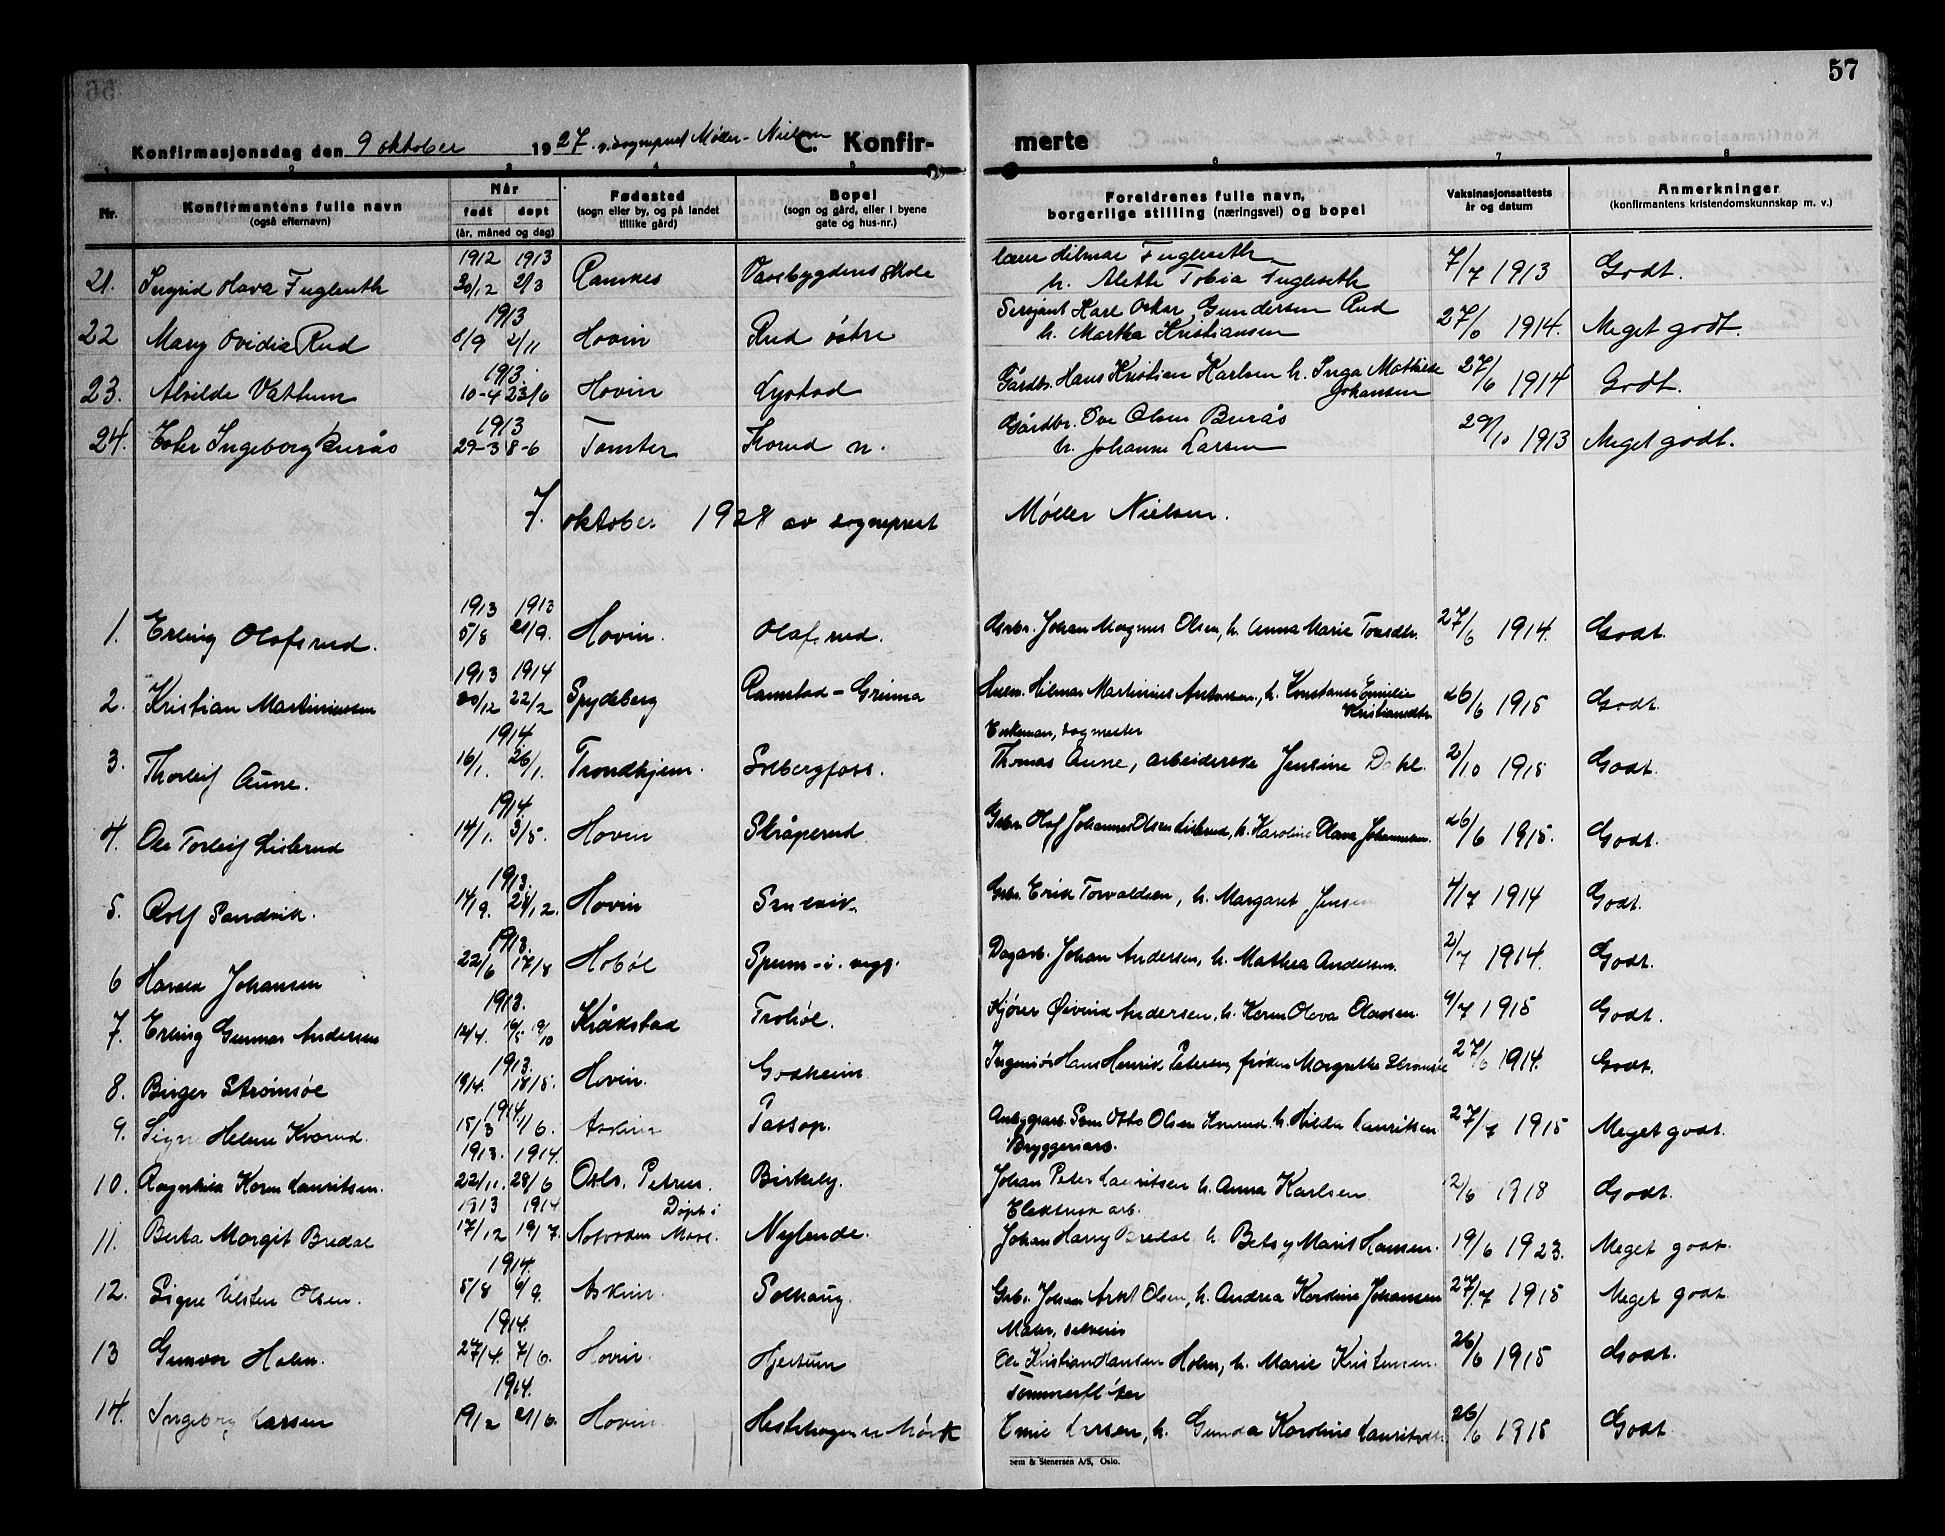 57
Konfirmasjonsdag den 9 oktober 1927 v. sogneprest Møller-Nielsen C. Konfirmerte
1 2 3 4 5 6 7 8
Nr. Konfirmantens fulle navn (også efternavn) Når født døpt (år, måned og dag) Fødested (sogn eller by, og på landet tillike gård) Bopel (sogn og gård, eller i byene gate og hus-nr.) Foreldrenes fulle navn, borgerlige stilling (næringsvei) og bopel Vaksinasjonsattests år og datum Anmerkninger (konfirmantens kristendomskunnskap m. v.)
1912 1913
21. Ingrid Hava Fugleseth 30/12 2/3 Ramnes Varsbygdens skole Lærer Hilmar Fugleseth h. Alette Tobia Fugleseth 7/7 1913 Godt.
1913
22 Mary Ovidia Rud 8/9 2/11 Hovin Rud østre Sersjant Karl Oskar Gundersen Rud h. Martha Kristiansen 27/6 1914. Meget godt.
1913.
23. Alvilde Vattum 10-4 23/6 Hovin Lystad Gårdbr. Hans Kristian Karlsen h. Inga Mathilde Johansen 27/6 1914 Godt.
1913
24. Ester Ingeborg Burås 29-3 8-6 Tomter Gårdbr. Ove Olsen Burås h. Johanne Larsen 29/10 1913 Meget godt.
7. oktober 1928 av sogneprest Møller Nielsen.
1913 1913
1. Erling Olafsrud. 5/8 21/9. Hovin. Olafsrud. Grbr. Johan Magnus Olsen, h. Anna Marie 27/6 1914. Godt.
1913 1914
2. Kristian Martiniussen 30/12 22/2 Spydeberg Ramstad-Grima Hilmar Martinius Andersen, h. Konstanse Emilie Kristiansdtr. 26/6 1915 Godt.
1914. Enkeman, sagmester
3. Thorleif Aune. 16/1. 26/1. Trondhjem. Solbergfoss. Thomas Aune, arbeiderske Jensine Dahl. 2/10 1915 Godt.
1914.
4. Ole Torleif Lislerud 14/1. 3/5. Hovin Skråperud Gbr. Olaf Johannes Olsen Lislerud, h. Karoline Olava Johannesen. 26/6 1915. Godt.
1913.
5. Rolf Sandvik. 14/9. 28/12. Hovin Sandvik. Gbr. Erik Torvaldsen, h. Margaret Jensen 4/7 1914 Godt.
1913.
6 Harald Johansen 22/6 17/8 Hobøl Spenn-i-vegg. Dagarb. Johan Andersen, h. Mathea Andersen. 2/7 1914. Godt.
1913.
7. Erling Gunnar Andersen 14/4. 19/10 Kråkstad Trollöl. Kjører Øivind Andersen, h. Karen Oleva Olaussen 4/7 1915 Godt.
1913.
8. Birger Strømsøe 19/4. 18/5. Hovin. Godheim. Ingeniør Hans Henrik Petersen, frøken Margrethe Strømsøe 27/6 1914. Godt.
1914
9. Signe Helene Kvarud. 15/3 1/6. Askim Passop. Anleggsarb. Otto Olsen h. Hilda Lauritsen 27/7 1915 Meget godt.
1913. 1914. Bryggeriarb.
10. Ragnhild Karen Lauritsen. 22/11. 28/6 Oslo, Petrus. Birkely. Johan Peter Lauritsen h. Anna Karlsen. 2/6 1918 Godt.
1913 1914 Døpt i Elektrisk arb.
11. Berta Margit Bredal 17/12 19/7. Notodden Moss. Nylende. Johan Harry Bredal h. Betsy Marit Hansen. 19/6 1923. Meget godt.
1914.
12. Signe Olsen. 5/8 6/9. Askim. Solhaug. Gbr. Johan Arnt Olsen, h. Andrea Karoline Johansen 27/7 1915 Meget godt.
1914. Maler, selveier
13 Gunvor Holm. 27/4. 7/6. Hovin. Hjertum Ole Kristian Hansen Holm, h. Marie Kristensen. 26/6 1915 Godt.
1914. Tømmerfløter
14. Ingeborg Larsen 19/2 21/6. Hovin Hestehagen u. Mörk Emil Larsen, h. Gunda Karoline Lauritsdtr. 26/6 1915 Godt.
Sem & Stenersen A/S, Oslo.